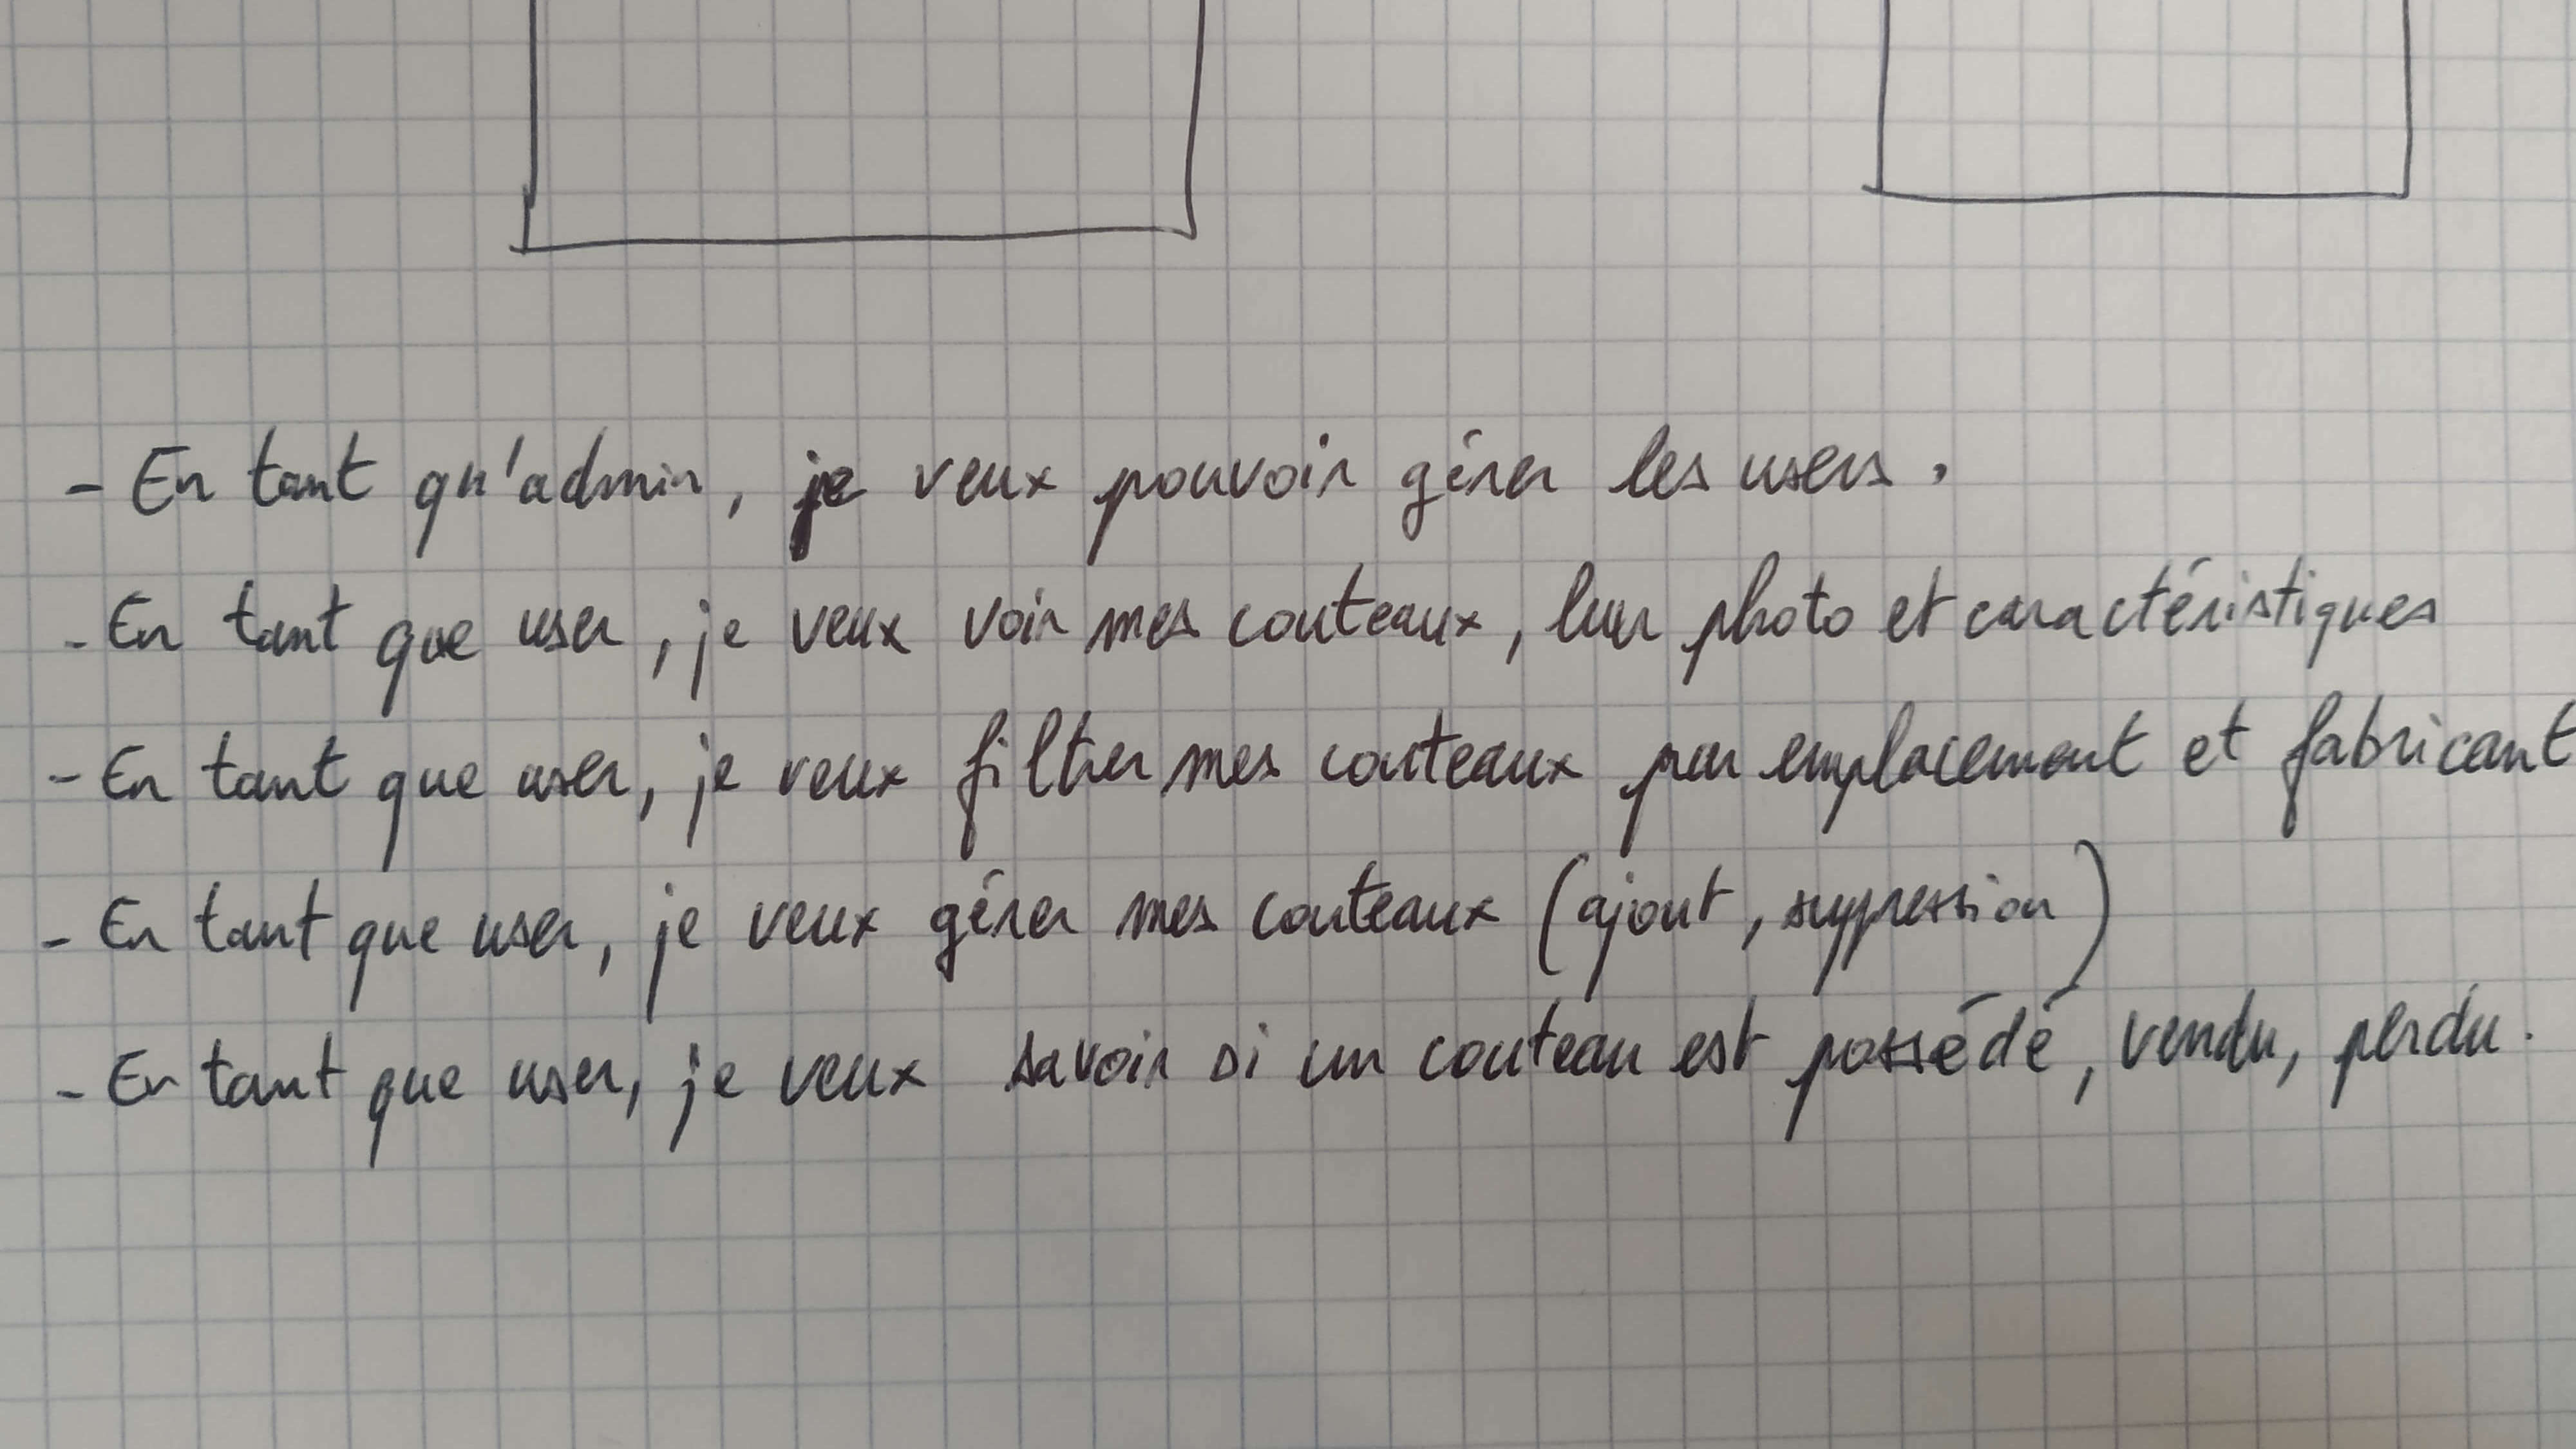 - En tant qu'admin, je veux pouvoir gérer les users.
- En tant que user, je veux voir mes couteaux, leur photo et caractéristiques
- En tant que user, je veux filtrer mes couteaux par emplacement et fabricant
- En tant que user, je veux gérer mes couteaux (ajout, suppression)
- En tant que user, je veux savoir si un couteau est possédé, vendu, perdu.